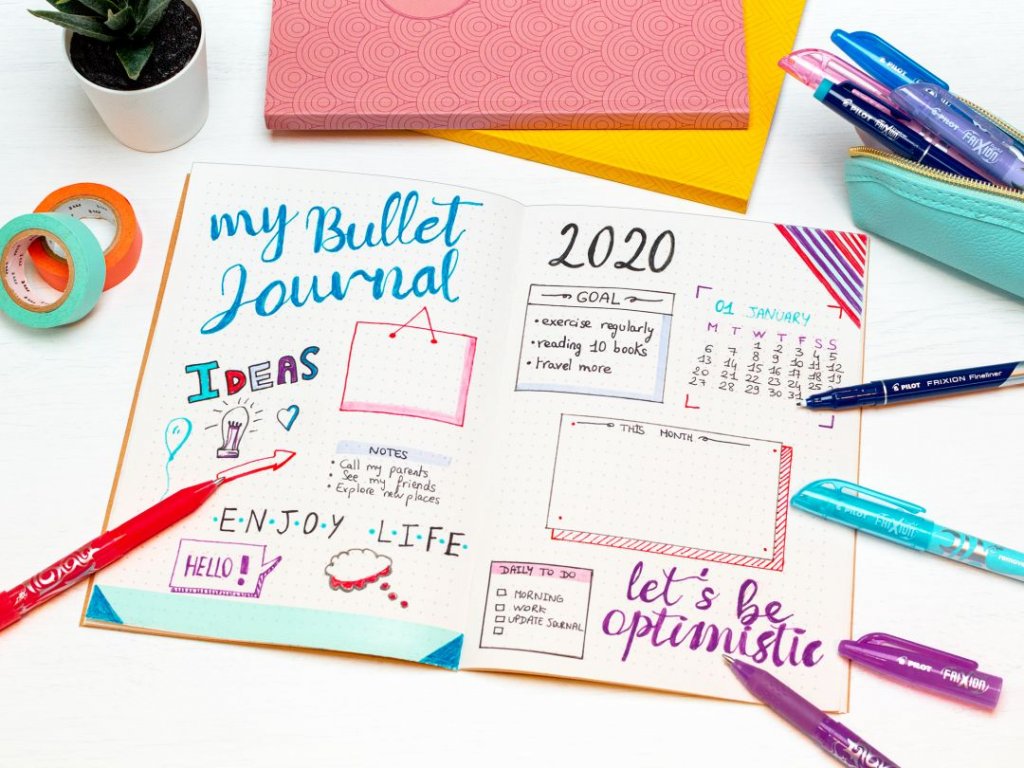 my Bullet
Journal
IDEAS
NOTES
• Call my parents
• See my friends
• Explore new places
ENJOY LIFE
HELLO!
2020
GOAL
• exercise regularly
• reading 10 books
• travel more
01 JANUARY
M T W T F S S
1 2 3 4 5
6 7 8 9 10 11 12
13 14 15 16 17 18 19
20 21 22 23 24 25
27 28 29 30 31
THIS MONTH
DAILY TO DO
MORNING
WORK
UPDATE JOURNAL
let's be
optimistic
PILOT FRIXION Fineliner
FRIXION
PILOT FRIXION
PILOT
PILOT FRIXION